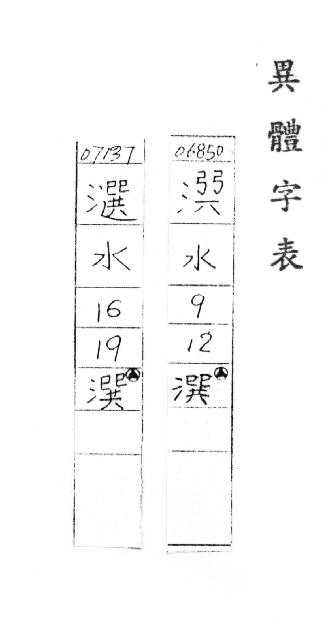 異體字表
06850
水
9
12
潠
07137
水
16
19
潠